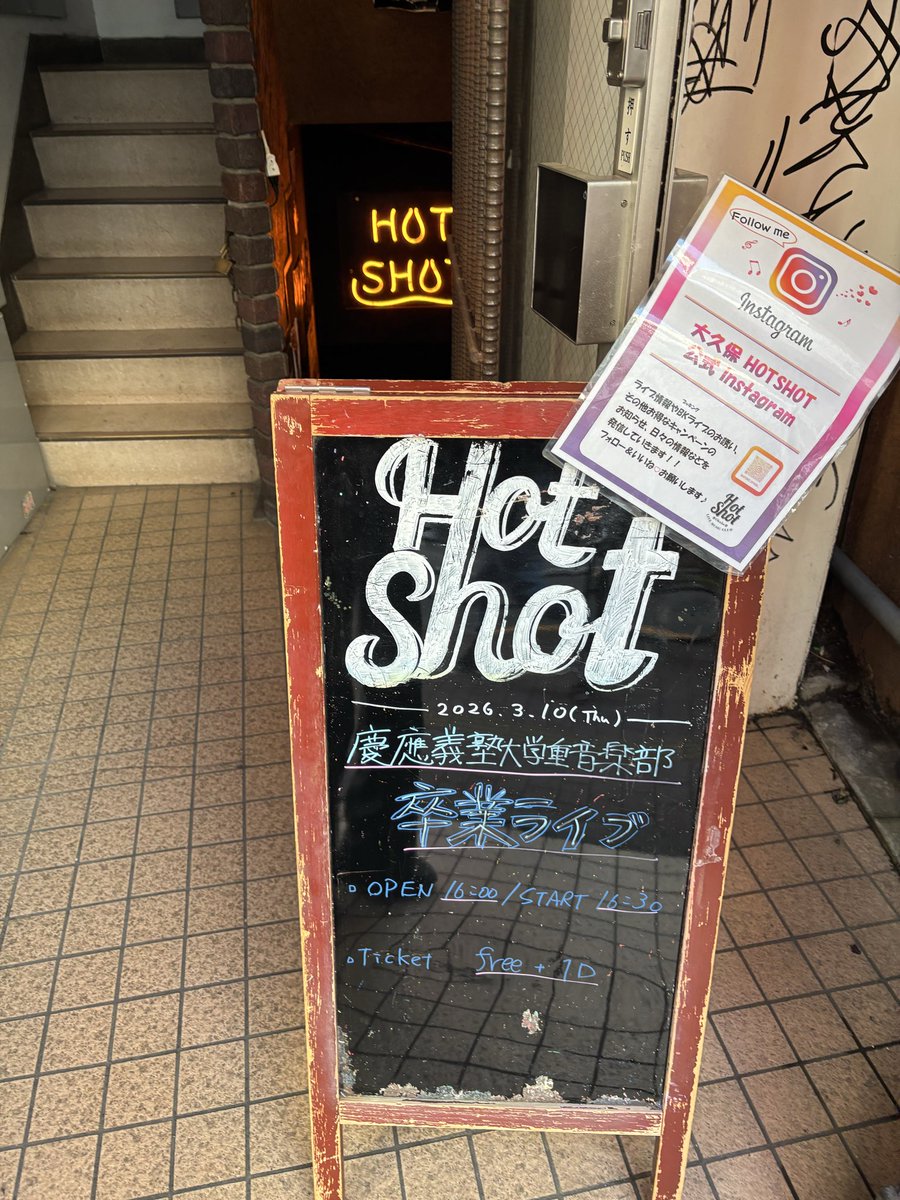 HOT
SHOT
押す
PUSH
Follow me
Instagram
大久保 HOTSHOT
公式 instagram
ライブ情報やBKライブのお誘い、
ブッキング
その他お得なキャンペーンの
お知らせ、日々の情報などを
発信していきます！！
フォロー&いいね お願いします♪
Hot
Shot
Hot
Shot
2026.3.10(Thu)
慶應義塾大学重音楽部
卒業ライブ
OPEN 16:00 / START 16:30
Ticket free + 1D